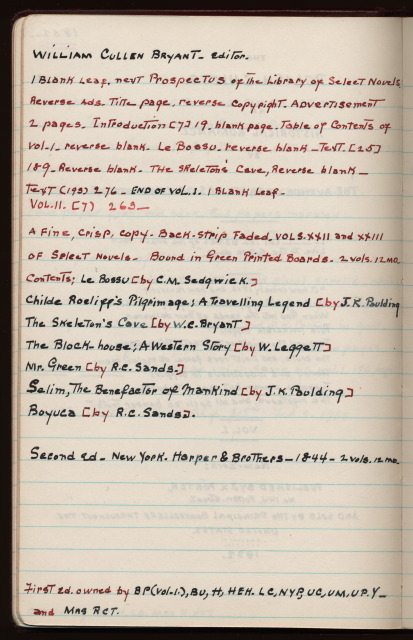 William Cullen Bryant - editor.
1 Blank Leaf, next Prospectus of the Library of Select Novels
Reverse Ads. Title page, reverse copyright. Advertisement
2 pages. Introduction [7] 19. blank page. Table of Contents of
Vol-1. reverse blank. Le Bossu. reverse blank - Text. [25]
189. Reverse blank. The Skeleton's Cave, Reverse blank -
Text (193) 276 - END OF VOL. 1. 1 Blank Leaf.
VOL. II. [7] 263 -
A Fine, crisp, copy. Back-strip Faded. VOLS. XXII and XXIII
OF Select Novels. Bound in Green Printed Boards. 2 vols. 12mo.
Contents; Le Bossu [by C.M. Sedgwick.]
Childe Roeliff's Pilgrimage; A Travelling Legend [by J.K. Paulding
The Skeleton's Cave [by W.C. Bryant]
The Block-house; A Western Story [by W. Leggett]
Mr. Green [by R.C. Sands.]
Selim, The Benefactor of Mankind [by J.K. Paulding]
Boyuca [by R.C. Sands].
Second ed - New York. Harper & Brothers - 1844 - 2 vols. 12mo.
First ed. owned by BP(vol-1.), BU, H, HEH. LC, NYP, UC, UM, U.P. Y -
and Mrs RCT.